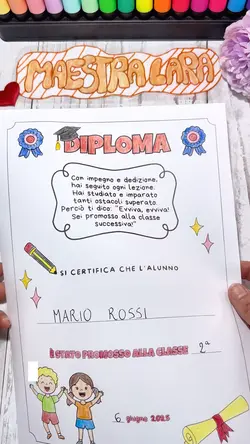 MAESTRA LARA
DIPLOMA
Con impegno e dedizione,
hai seguito ogni lezione.
Hai studiato e imparato
tanti ostacoli superato.
Perciò ti dico: "Evviva, evviva!
Sei promosso alla classe
successiva!"
SI CERTIFICA CHE L'ALUNNO
MARIO ROSSI
È STATO PROMOSSO ALLA CLASSE 2ª
6 giugno 2025